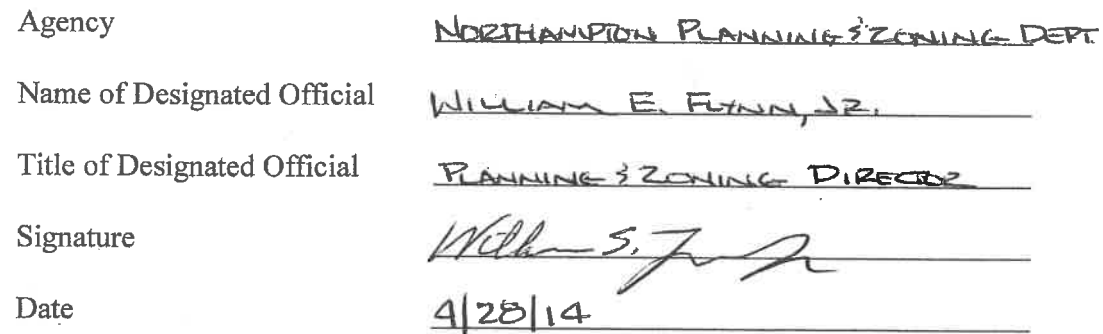 Agency NORTHAMPTON PLANNING & ZONING DEPT.
Name of Designated Official WILLIAM E. FLYNN, JR.
Title of Designated Official PLANNING & ZONING DIRECTOR
Signature
Date 4/28/14